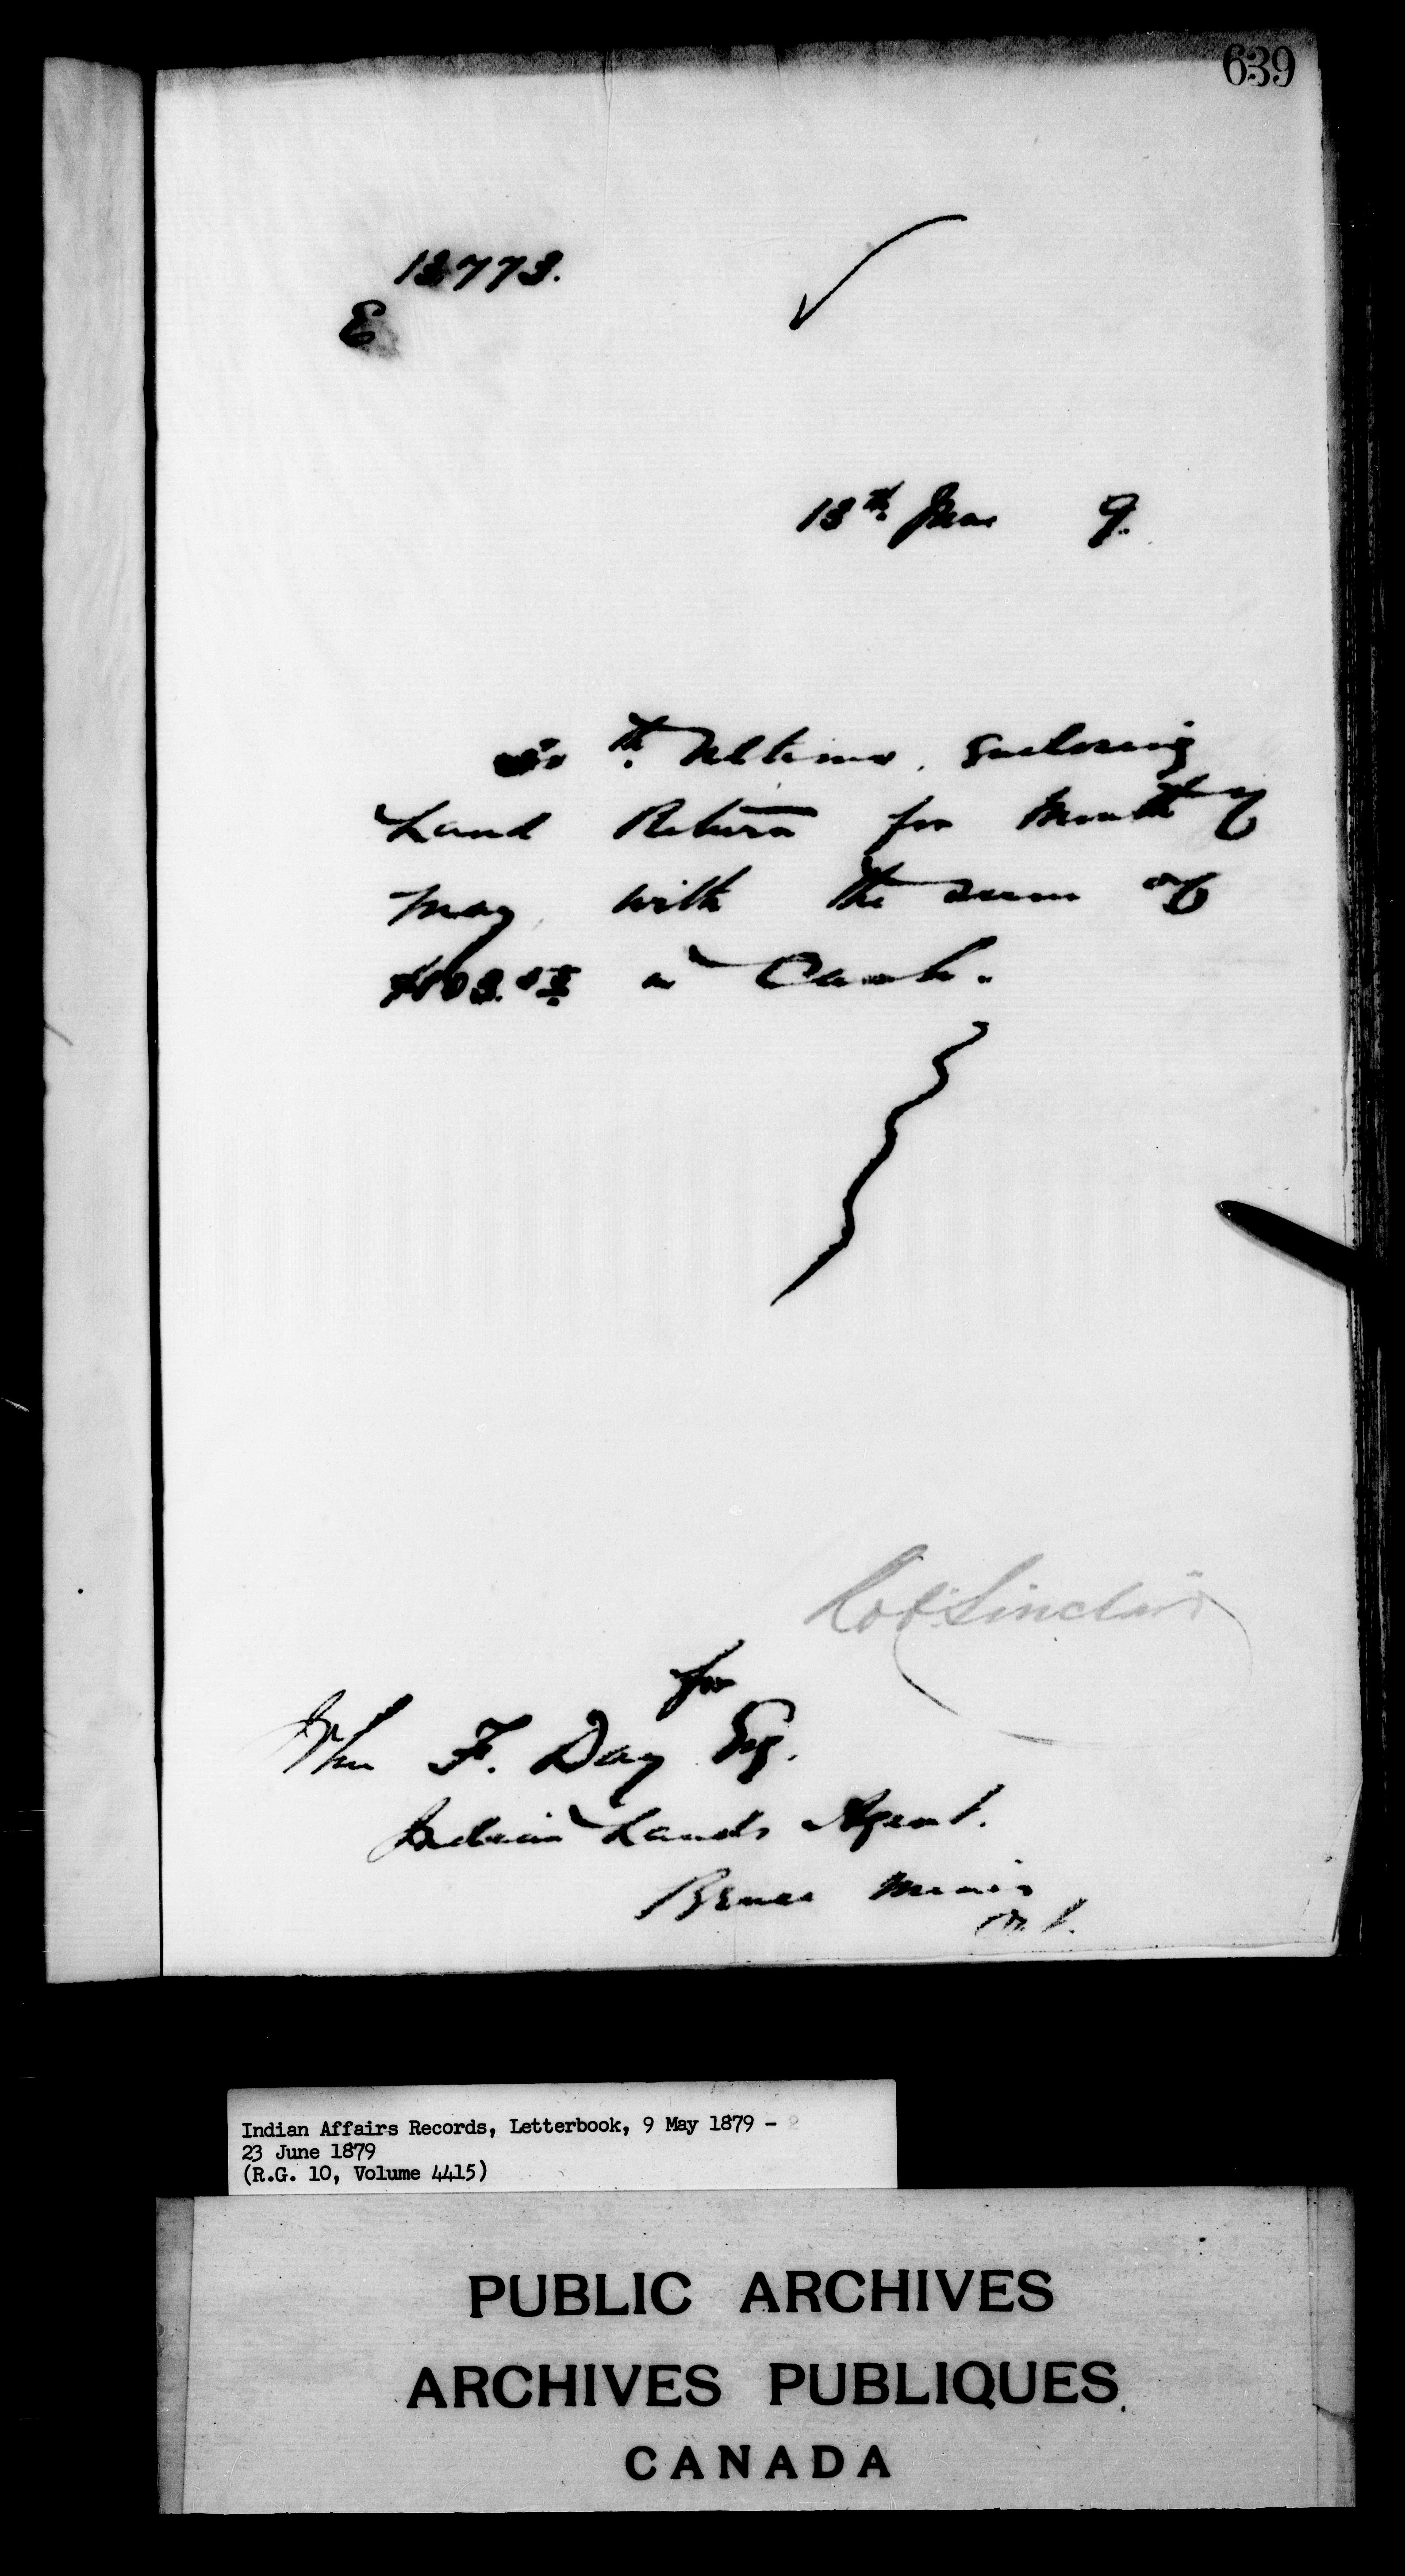 639
13773.
E
13th June 9.
th Ultimo, Enclosing
Land Return for Month of
May with the sum of
in Cash.
Robt Sinclair
for
Wm F. Day Esq.
Indian Lands Agent.
Bruce Mines
Ont.
Indian Affairs Records, Letterbook, 9 May 1879 -
23 June 1879
(R.G. 10, Volume 4415)
PUBLIC ARCHIVES
ARCHIVES PUBLIQUES
CANADA